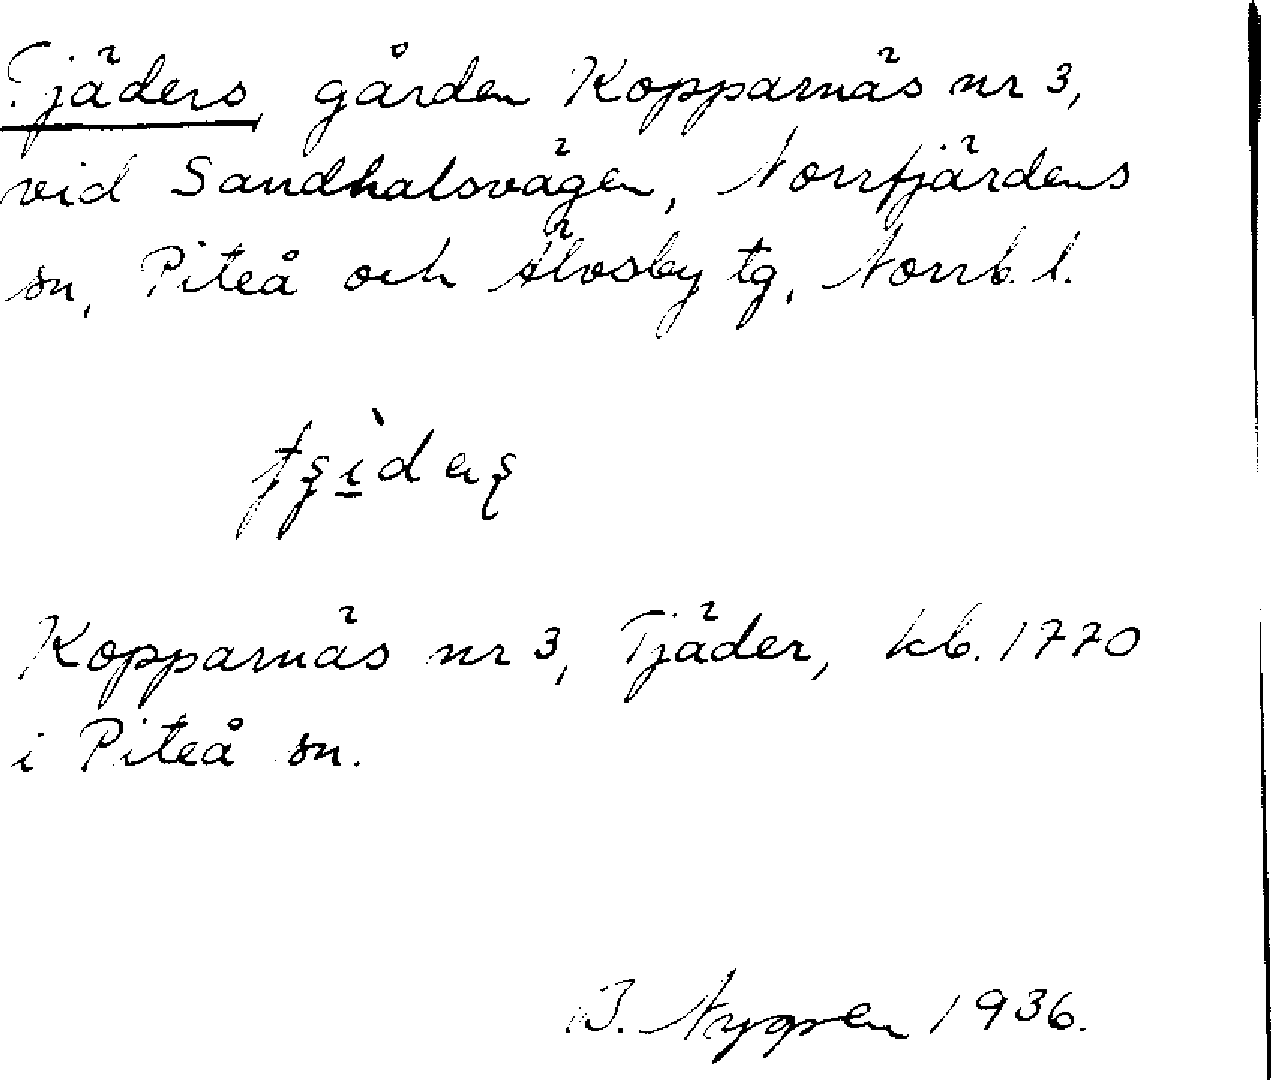 Tjäders, gården Kopparnäs nr 3,
vid Sandhalsvägen, Norrfjärdens
sn, Piteå och Älvsby tg, Norrb. l.
Kopparnäs nr 3, Tjäder, kb. 1770
i Piteå sn.
B. Nygren 1936.